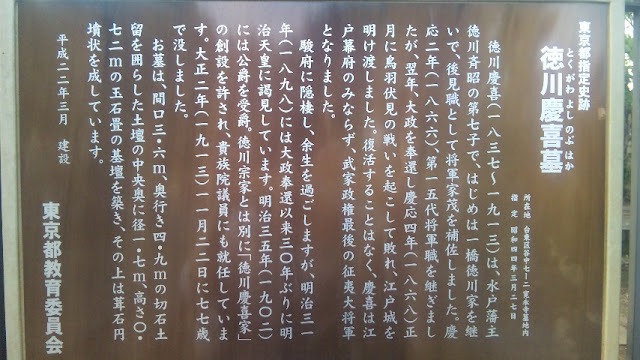 東京都指定史跡
とくがわよしのぶはか
徳川慶喜墓
所在地 台東区谷中七ー二 寛永寺墓地内
指定 昭和四四年三月二七日
徳川慶喜(一八三七〜一九一三)は、水戸藩主
徳川斉昭の第七子で、はじめは一橋徳川家を継
いで、後見職として将軍家茂を補佐しました。慶
応二年(一八六六)、第一五代将軍職を継ぎまし
たが、翌年、大政を奉還し慶応四年(一八六八)正
月に鳥羽伏見の戦いを起こして敗れ、江戸城を
明け渡しました。復活することはなく、慶喜は江
戸幕府のみならず、武家政権最後の征夷大将軍
となりました。
駿府に隠棲し、余生を過ごしますが、明治三一
年(一八九八)には大政奉還以来三〇年ぶりに明
治天皇に謁見しています。明治三五年(一九〇二)
には公爵を受爵。徳川宗家とは別に「徳川慶喜家」
の創設を許され、貴族院議員にも就任していま
す。大正二年(一九一三)一一月二二日に七七歳
で没しました。
お墓は、間口三・六m、奥行き四・九mの切石土
留を囲らした土壇の中央奥に径一・七m、高さ〇・
七二mの玉石畳の基壇を築き、その上は葺石円
墳状を成しています。
平成二二年三月 建設
東京都教育委員会